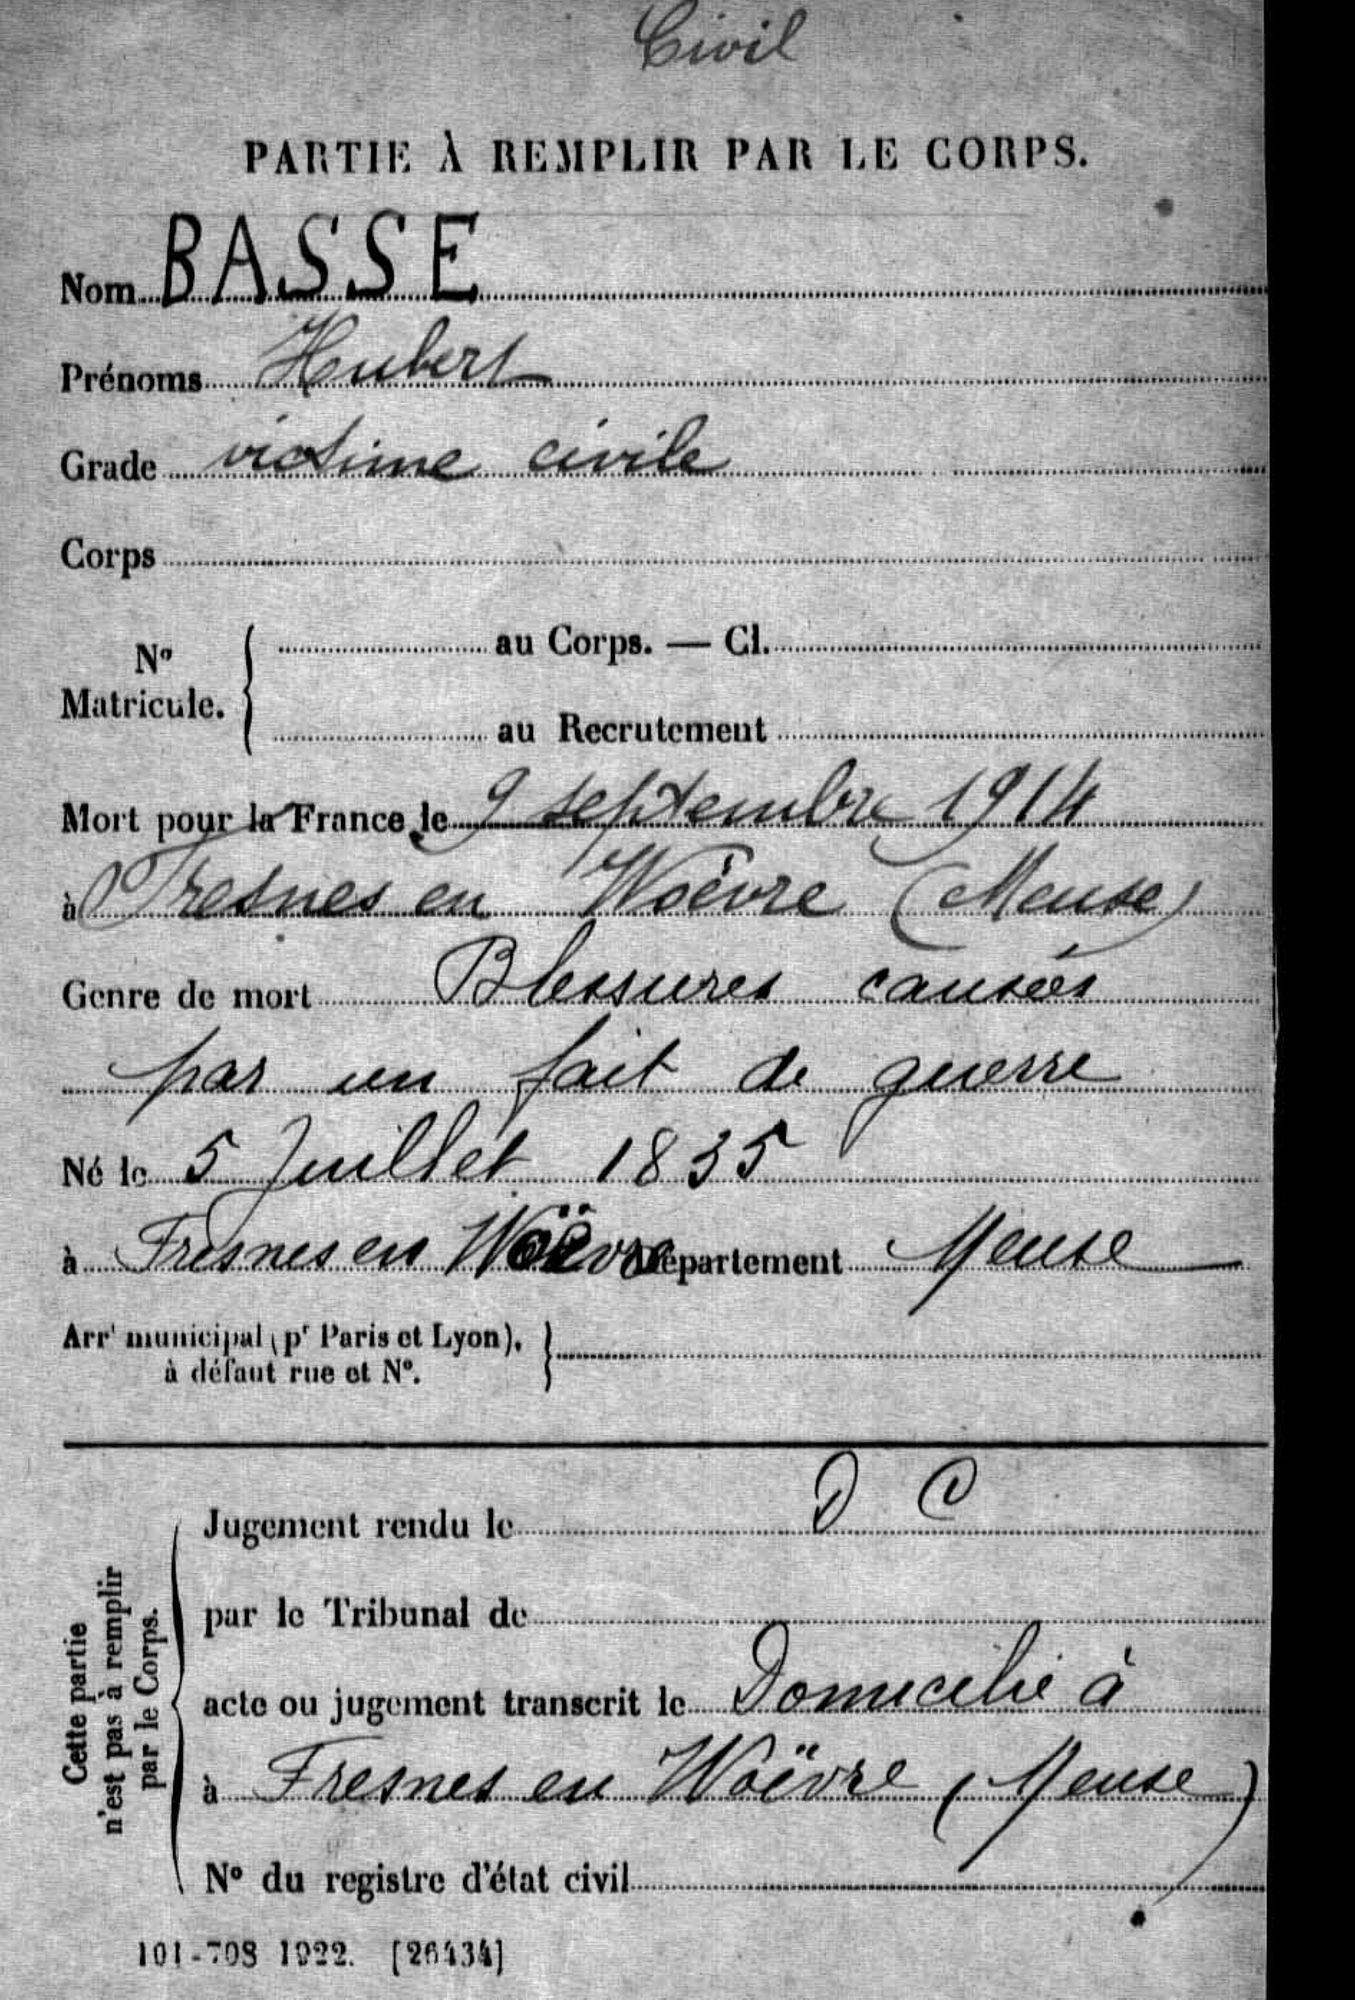 Civil
PARTIE À REMPLIR PAR LE CORPS.
Nom BASSE
Prénoms Hubert
Grade victime civile
Corps
N° Matricule. { au Corps. — Cl.
au Recrutement
Mort pour la France le 9 septembre 1914
à Fresnes en Woëvre (Meuse)
Genre de mort Blessures causées
par un fait de guerre
Né le 5 Juillet 1835
à Fresnes en Woëvre Département Meuse
Arr' municipal (p' Paris et Lyon), }
à défaut rue et N°.
D C
Jugement rendu le
par le Tribunal de
acte ou jugement transcrit le Domicilié à
à Fresnes en Woëvre (Meuse)
N° du registre d'état civil
Cette partie
n'est pas à remplir
par le Corps.
101-708 1922. [26434]